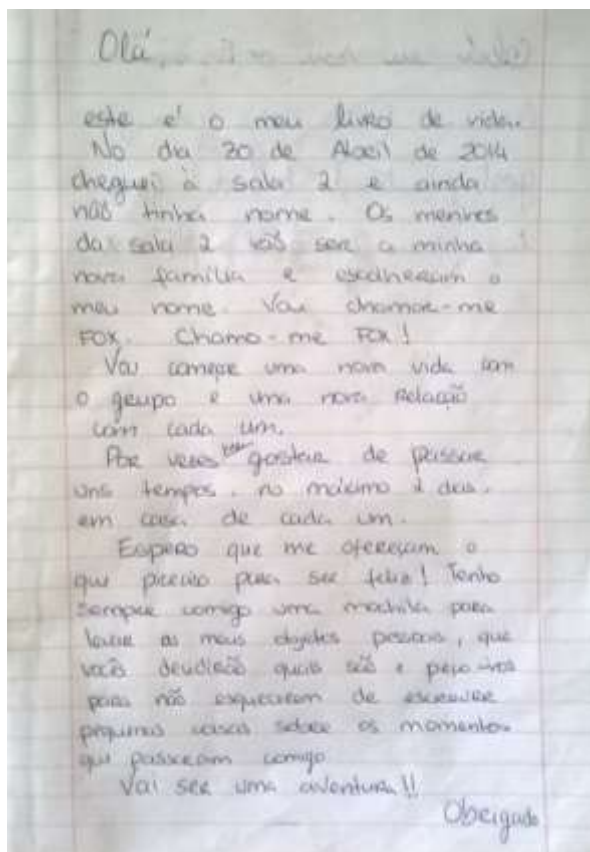 Olá,
este é o meu livro de vida.
No dia 20 de Abril de 2014
cheguei à sala 2 e ainda
não tinha nome. Os meninos
da sala 2 vão ser a minha
nova família e escolheram o
meu nome. Vou chamar-me
FOX. Chamo-me FOX!
Vai começar uma nova vida com
o grupo e uma nova relação
com cada um.
Por vezes gostaria de passar
uns tempos, no máximo 2 dias,
em casa de cada um.
Espero que me ofereçam o
que preciso para ser feliz! Tenho
sempre comigo uma mochila para
levar os meus objetos pessoais, que
vocês decidirão quais são e peço-vos
para não esquecerem de escrever
pequenas coisas sobre os momentos
que passaram comigo
Vai ser uma aventura!!
Obrigado